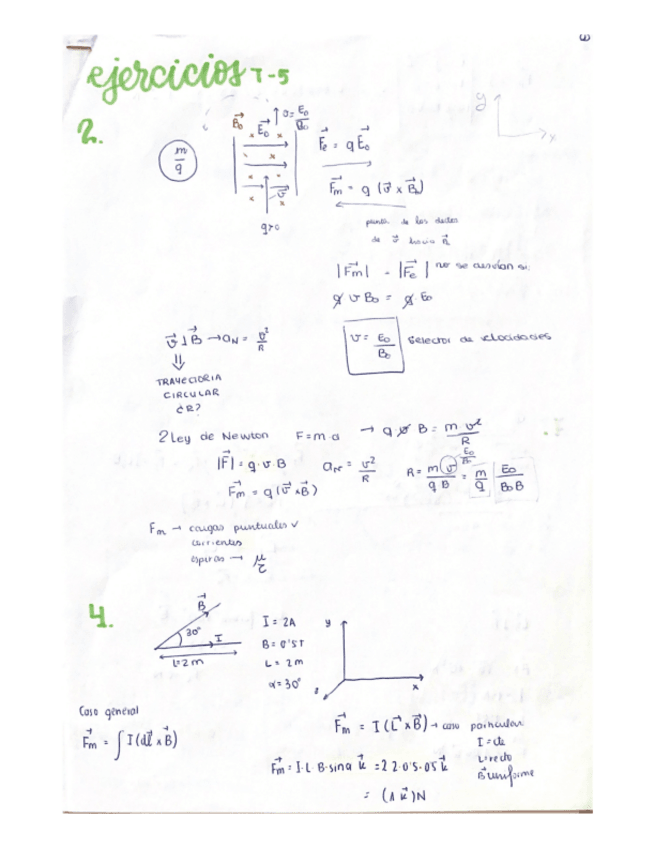 ejercicios T-5
2.
m/q
B₀→ E₀→ v = E₀/B₀
y
x
F⃗e = q E⃗₀
v⃗
F⃗m = q (v⃗ x B⃗₀)
de los dedos
de v⃗ hacia B⃗
|F⃗m| = |F⃗e| no se desvían si:
q v B₀ = q E₀
v = E₀/B₀ Selector de velocidades
v⃗ ⊥ B⃗ → aN = v²/R
⇓
TRAYECTORIA
CIRCULAR
¿R?
2 Ley de Newton F = m·a → q v B = m v²/R
|F⃗| = q·v·B aN = v²/R R = m v / q B = m/q E₀/B₀B
E₀/B₀
F⃗m = q (v⃗ x B⃗)
Fm → cargas puntuales ✓
corrientes
espiras → μ⃗
τ⃗
4.
B⃗
30°
I
L=2m
I = 2A
B = 0'5T
L = 2m
α = 30°
y
x
z
Caso general
F⃗m = ∫ I (dl⃗ x B⃗)
F⃗m = I (L⃗ x B⃗) → caso particular
I = cte
L recto
B⃗ uniforme
F⃗m = I·L·B·sinα k⃗ = 2·2·0'5·0'5 k⃗
= (1 k⃗) N